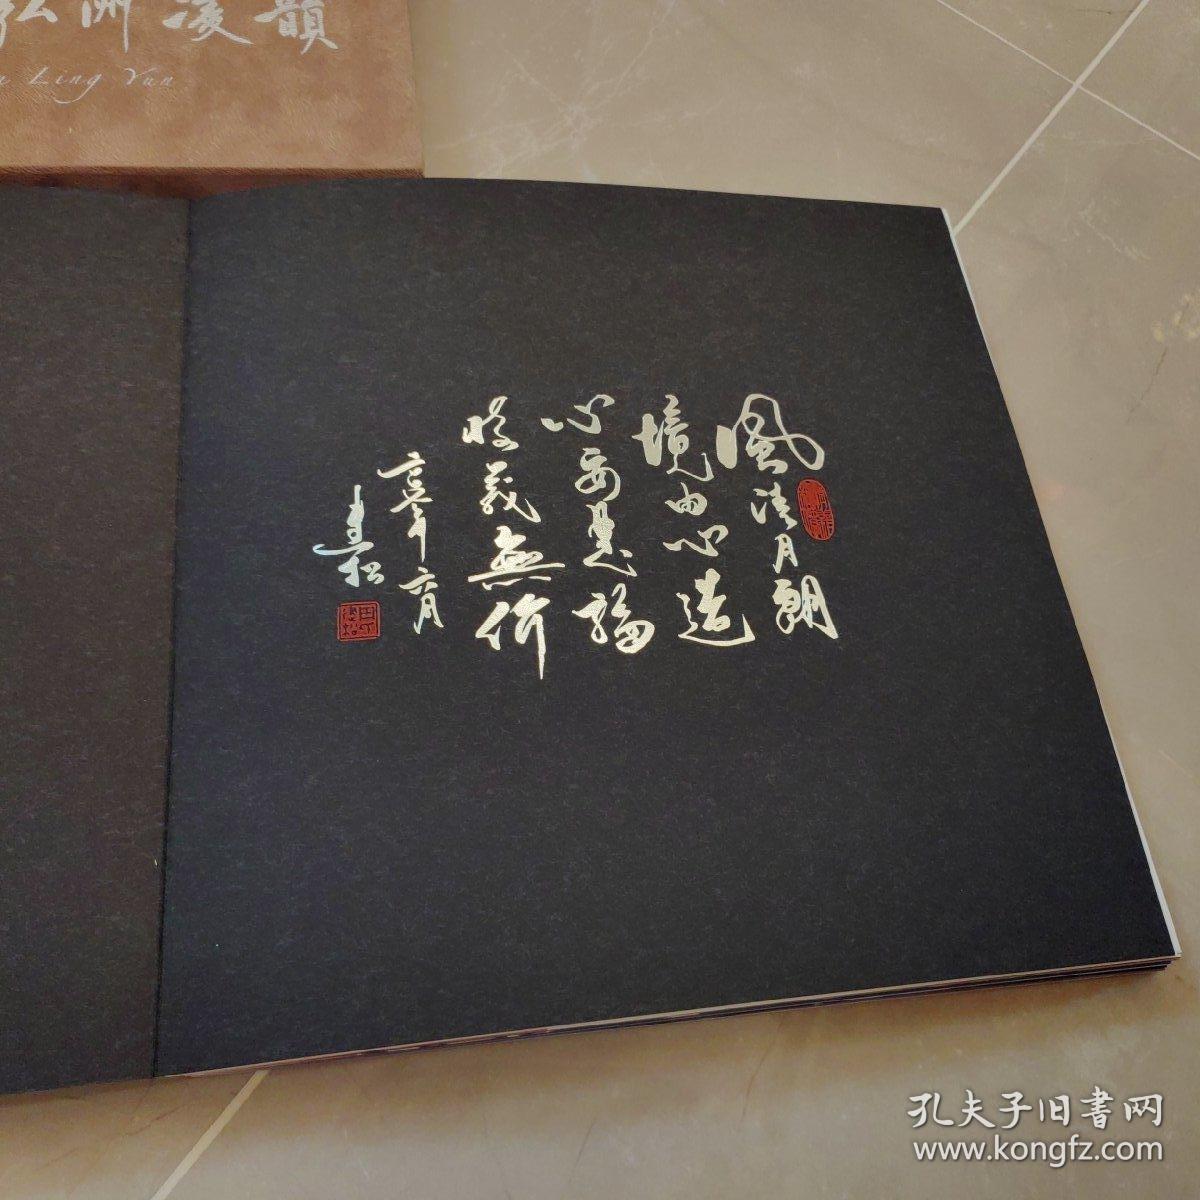 弘洲凌韻
Ling Yun
風清月朗
境由心造
心安是福
時義無價
辛卯年六月
孔夫子旧書网
www.kongfz.com